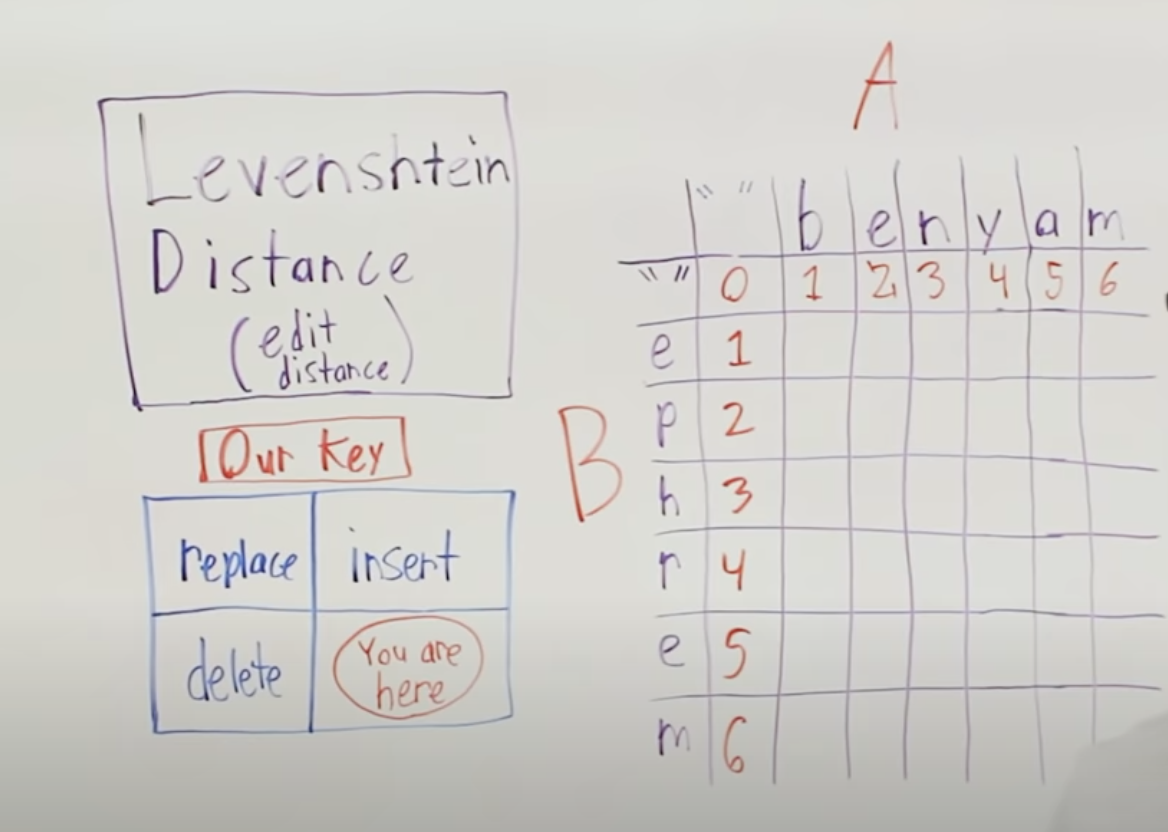 Levenshtein
Distance
(edit
distance)
Our Key
replace insert
delete You are
here
A
" " b e n y a m
" " 0 1 2 3 4 5 6
e 1
p 2
B
h 3
r 4
e 5
m 6